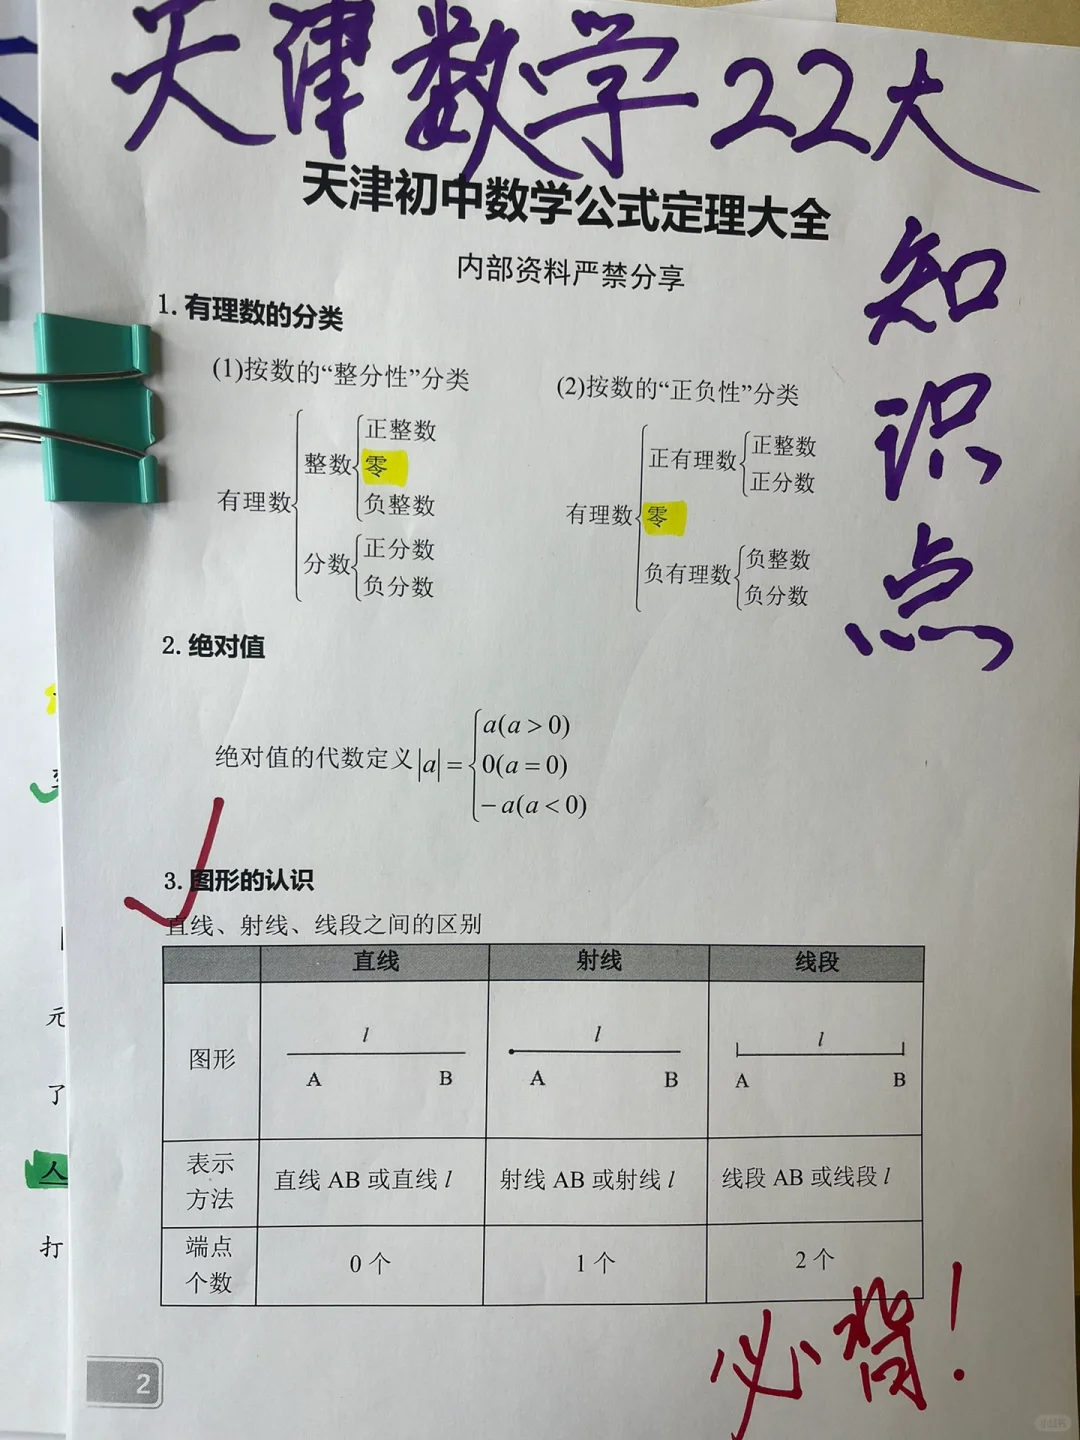 天津数学22大
知识点
天津初中数学公式定理大全
内部资料严禁分享
1. 有理数的分类
(1)按数的“整分性”分类
有理数
整数
正整数
零
负整数
分数
正分数
负分数
(2)按数的“正负性”分类
有理数
正有理数
正整数
正分数
零
负有理数
负整数
负分数
2. 绝对值
绝对值的代数定义|a|=
a(a>0)
0(a=0)
-a(a<0)
3. 图形的认识
直线、射线、线段之间的区别
直线 射线 线段
图形
l l l
A B A B A B
表示
方法
直线 AB 或直线 l 射线 AB 或射线 l 线段 AB 或线段 l
端点
个数
0 个 1 个 2 个
必背！
2
元
了
人
打
小红书